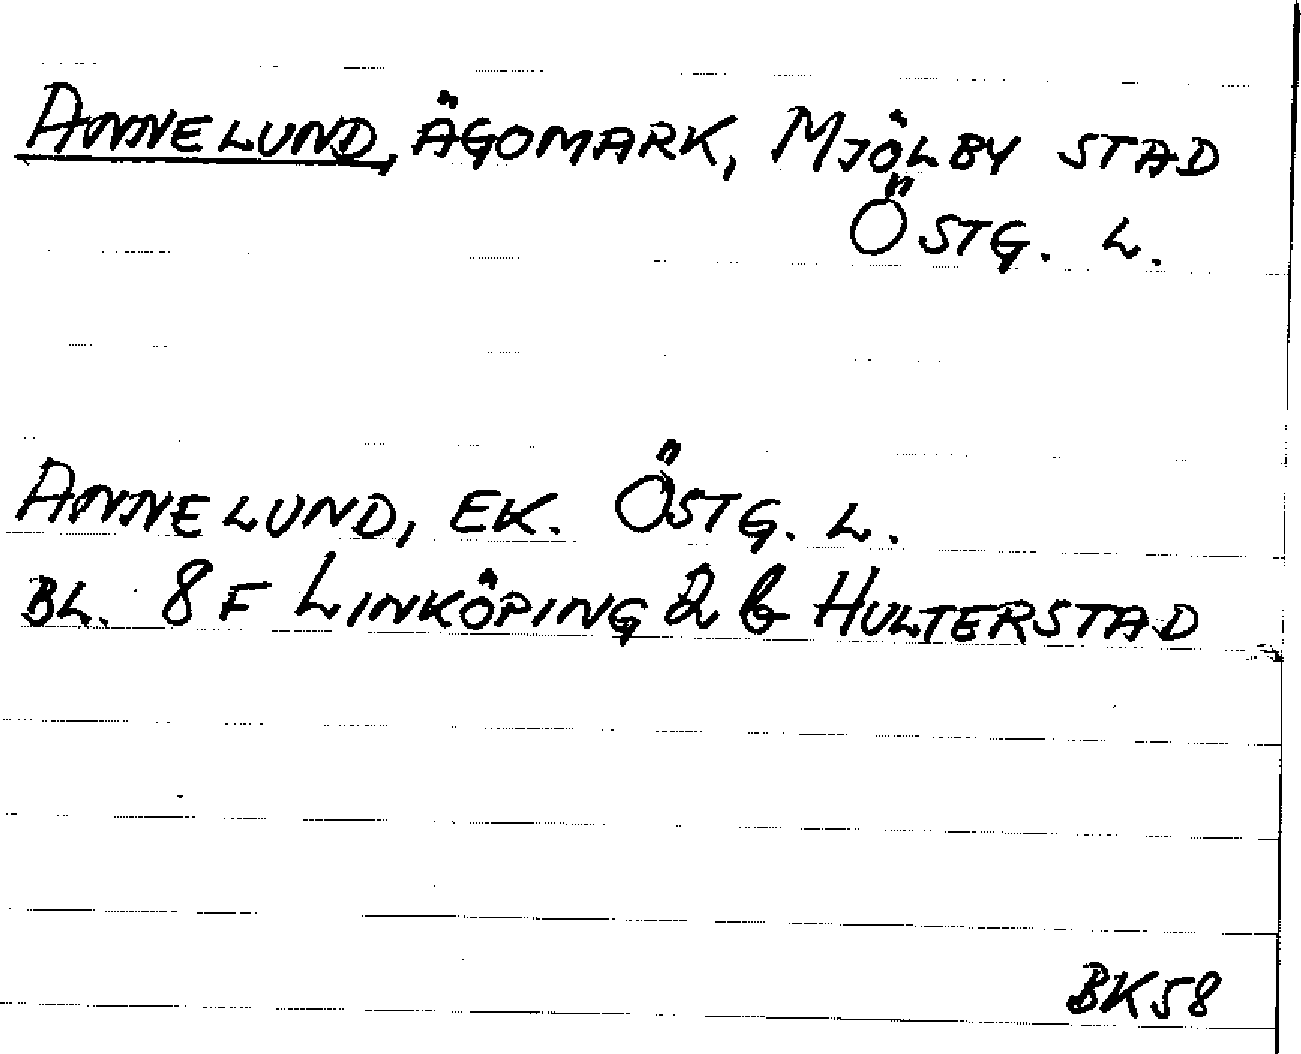 ANNELUND, ÄGOMARK, MJÖLBY STAD
ÖSTG. L.
ANNELUND, EK. ÖSTG. L.
BL. 8F LINKÖPING 2 b HULTERSTAD
BK58